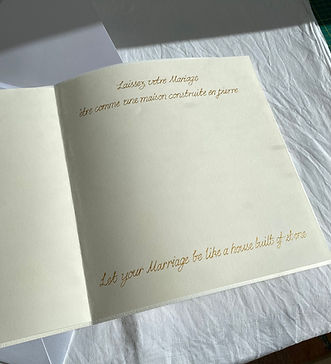 Laissez votre Mariage
être comme une maison construite en pierre
Let your Marriage be like a house built of stone